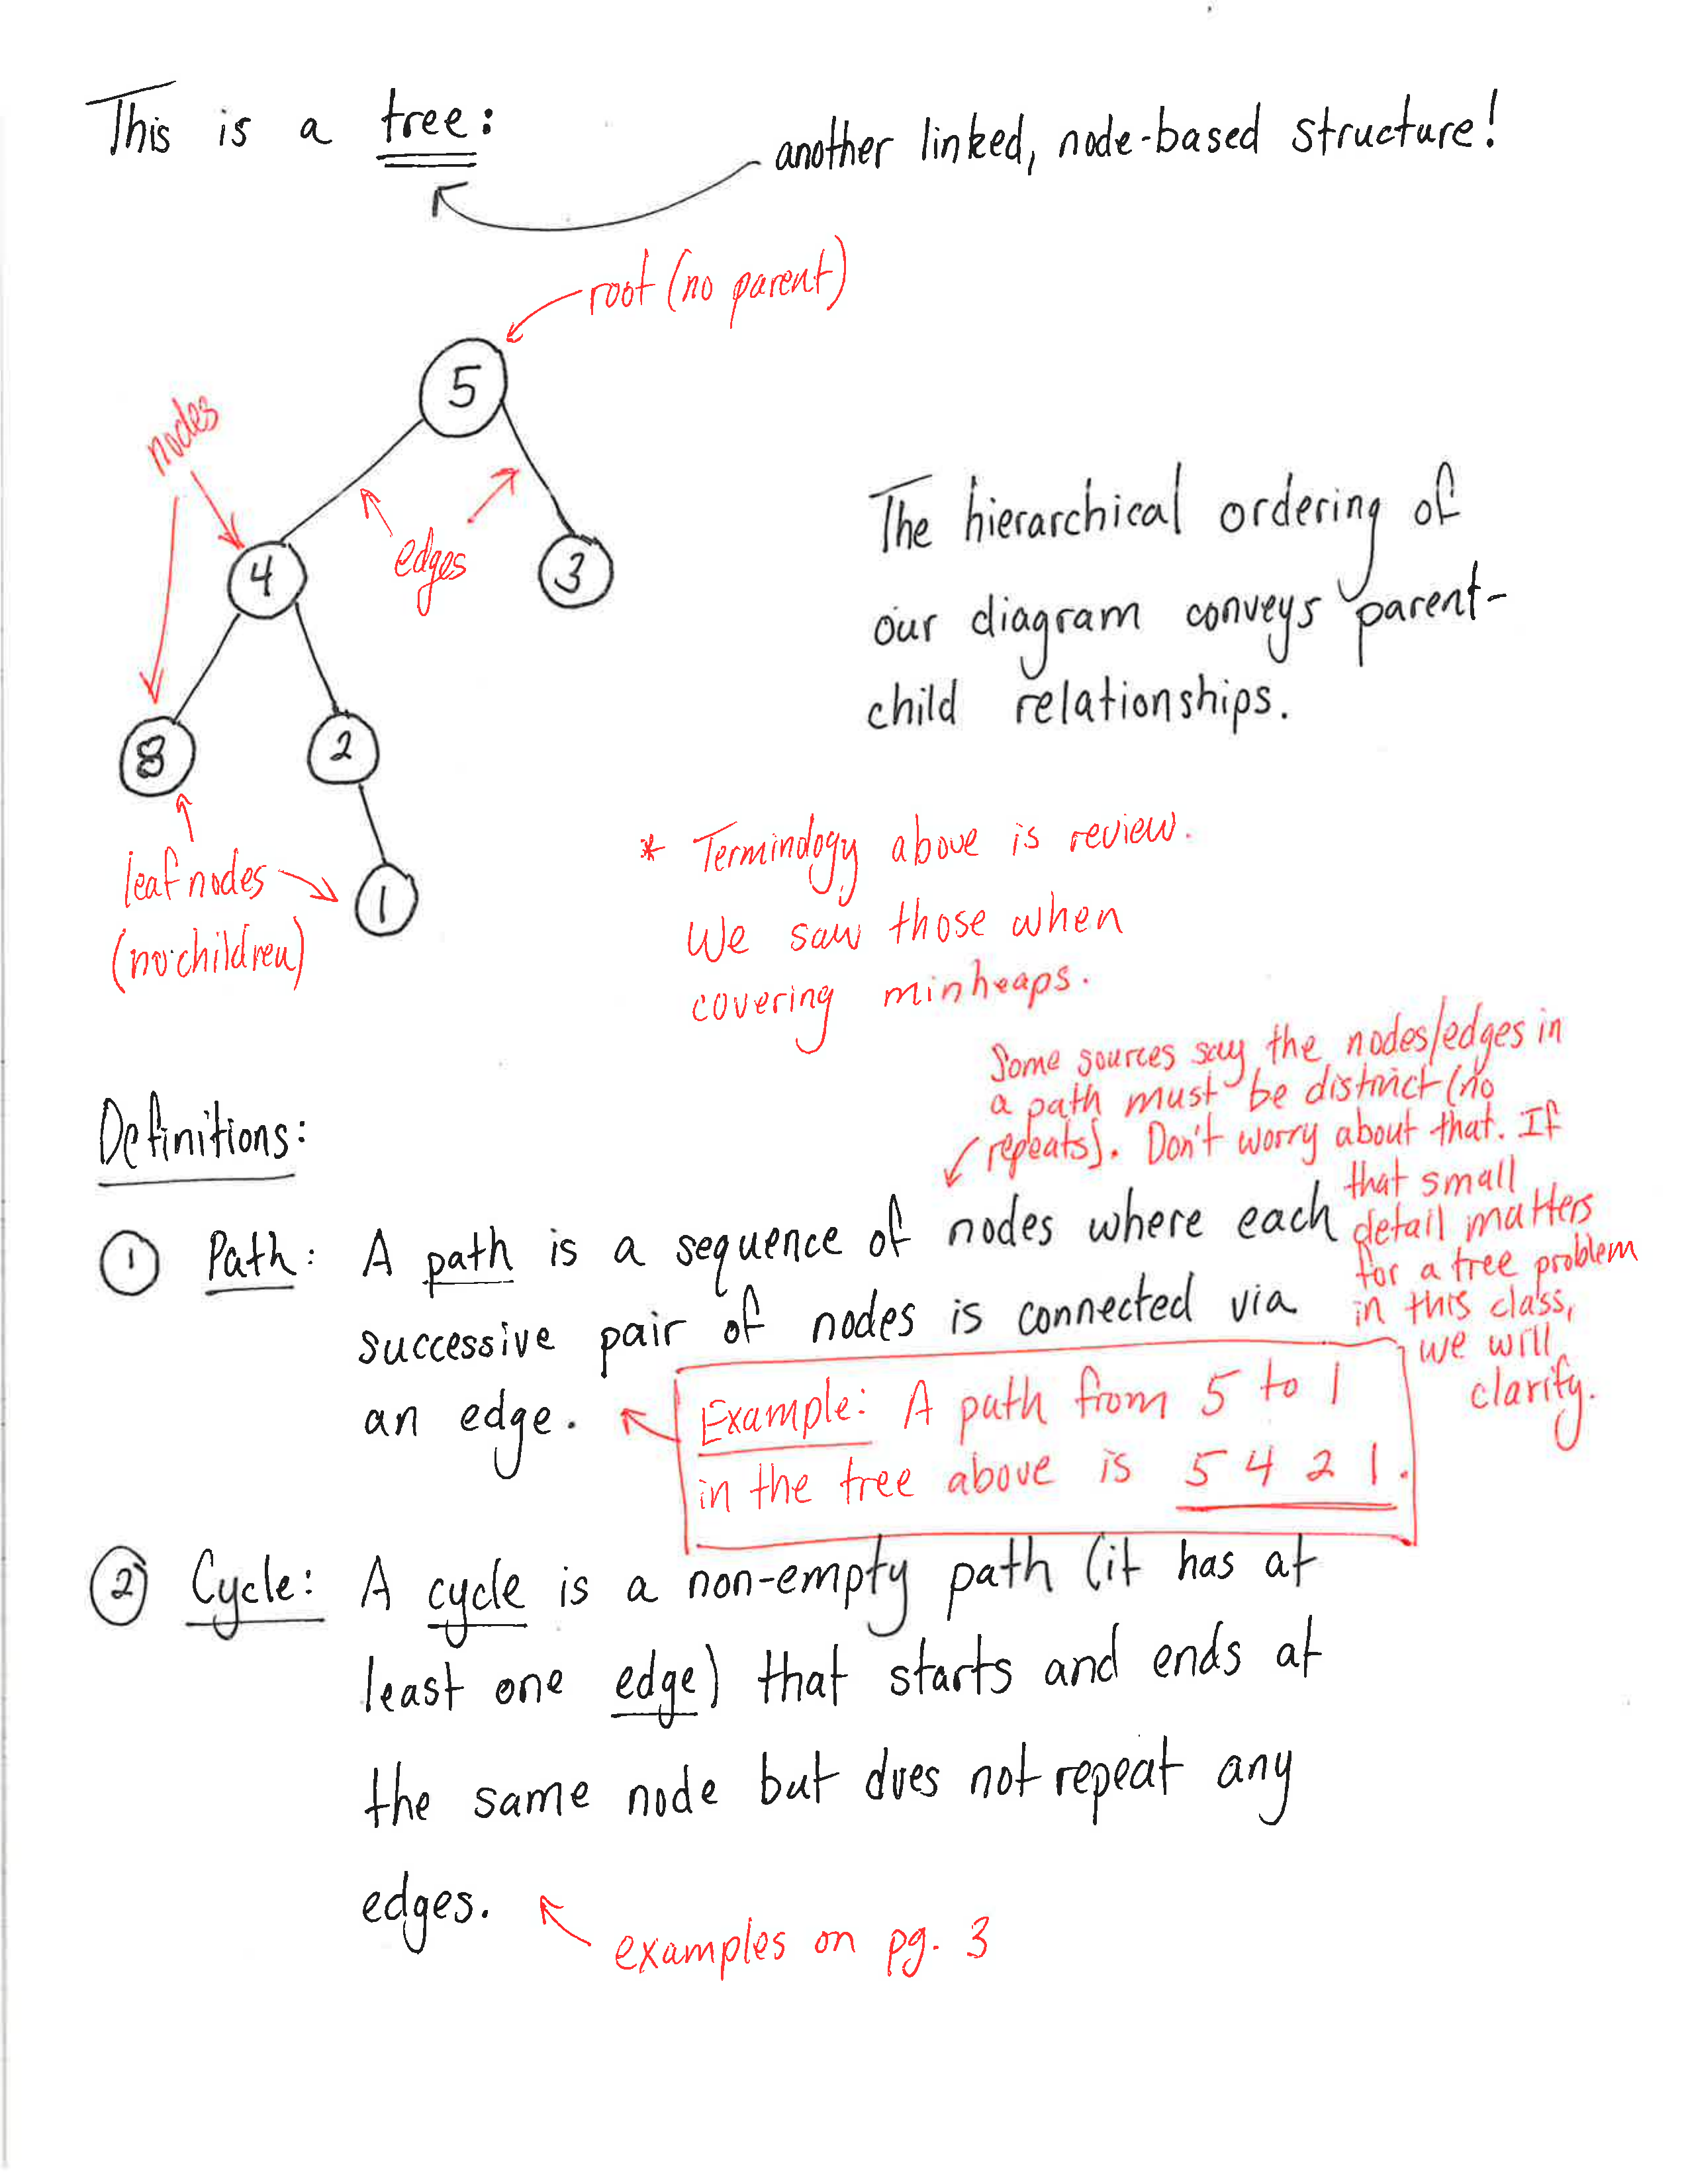 This is a tree:
another linked, node-based structure!
root (no parent)
5
nodes
edges
4
3
8
2
1
leaf nodes
(no children)
The hierarchical ordering of
our diagram conveys parent-
child relationships.
* Terminology above is review.
We saw those when
covering minheaps.
Definitions:
Some sources say the nodes/edges in
a path must be distinct (no
repeats). Don't worry about that. If
that small
detail matters
for a tree problem
in this class,
we will
clarify.
① Path: A path is a sequence of nodes where each
successive pair of nodes is connected via
an edge.
Example: A path from 5 to 1
in the tree above is 5 4 2 1.
② Cycle: A cycle is a non-empty path (it has at
least one edge) that starts and ends at
the same node but does not repeat any
edges.
examples on pg. 3